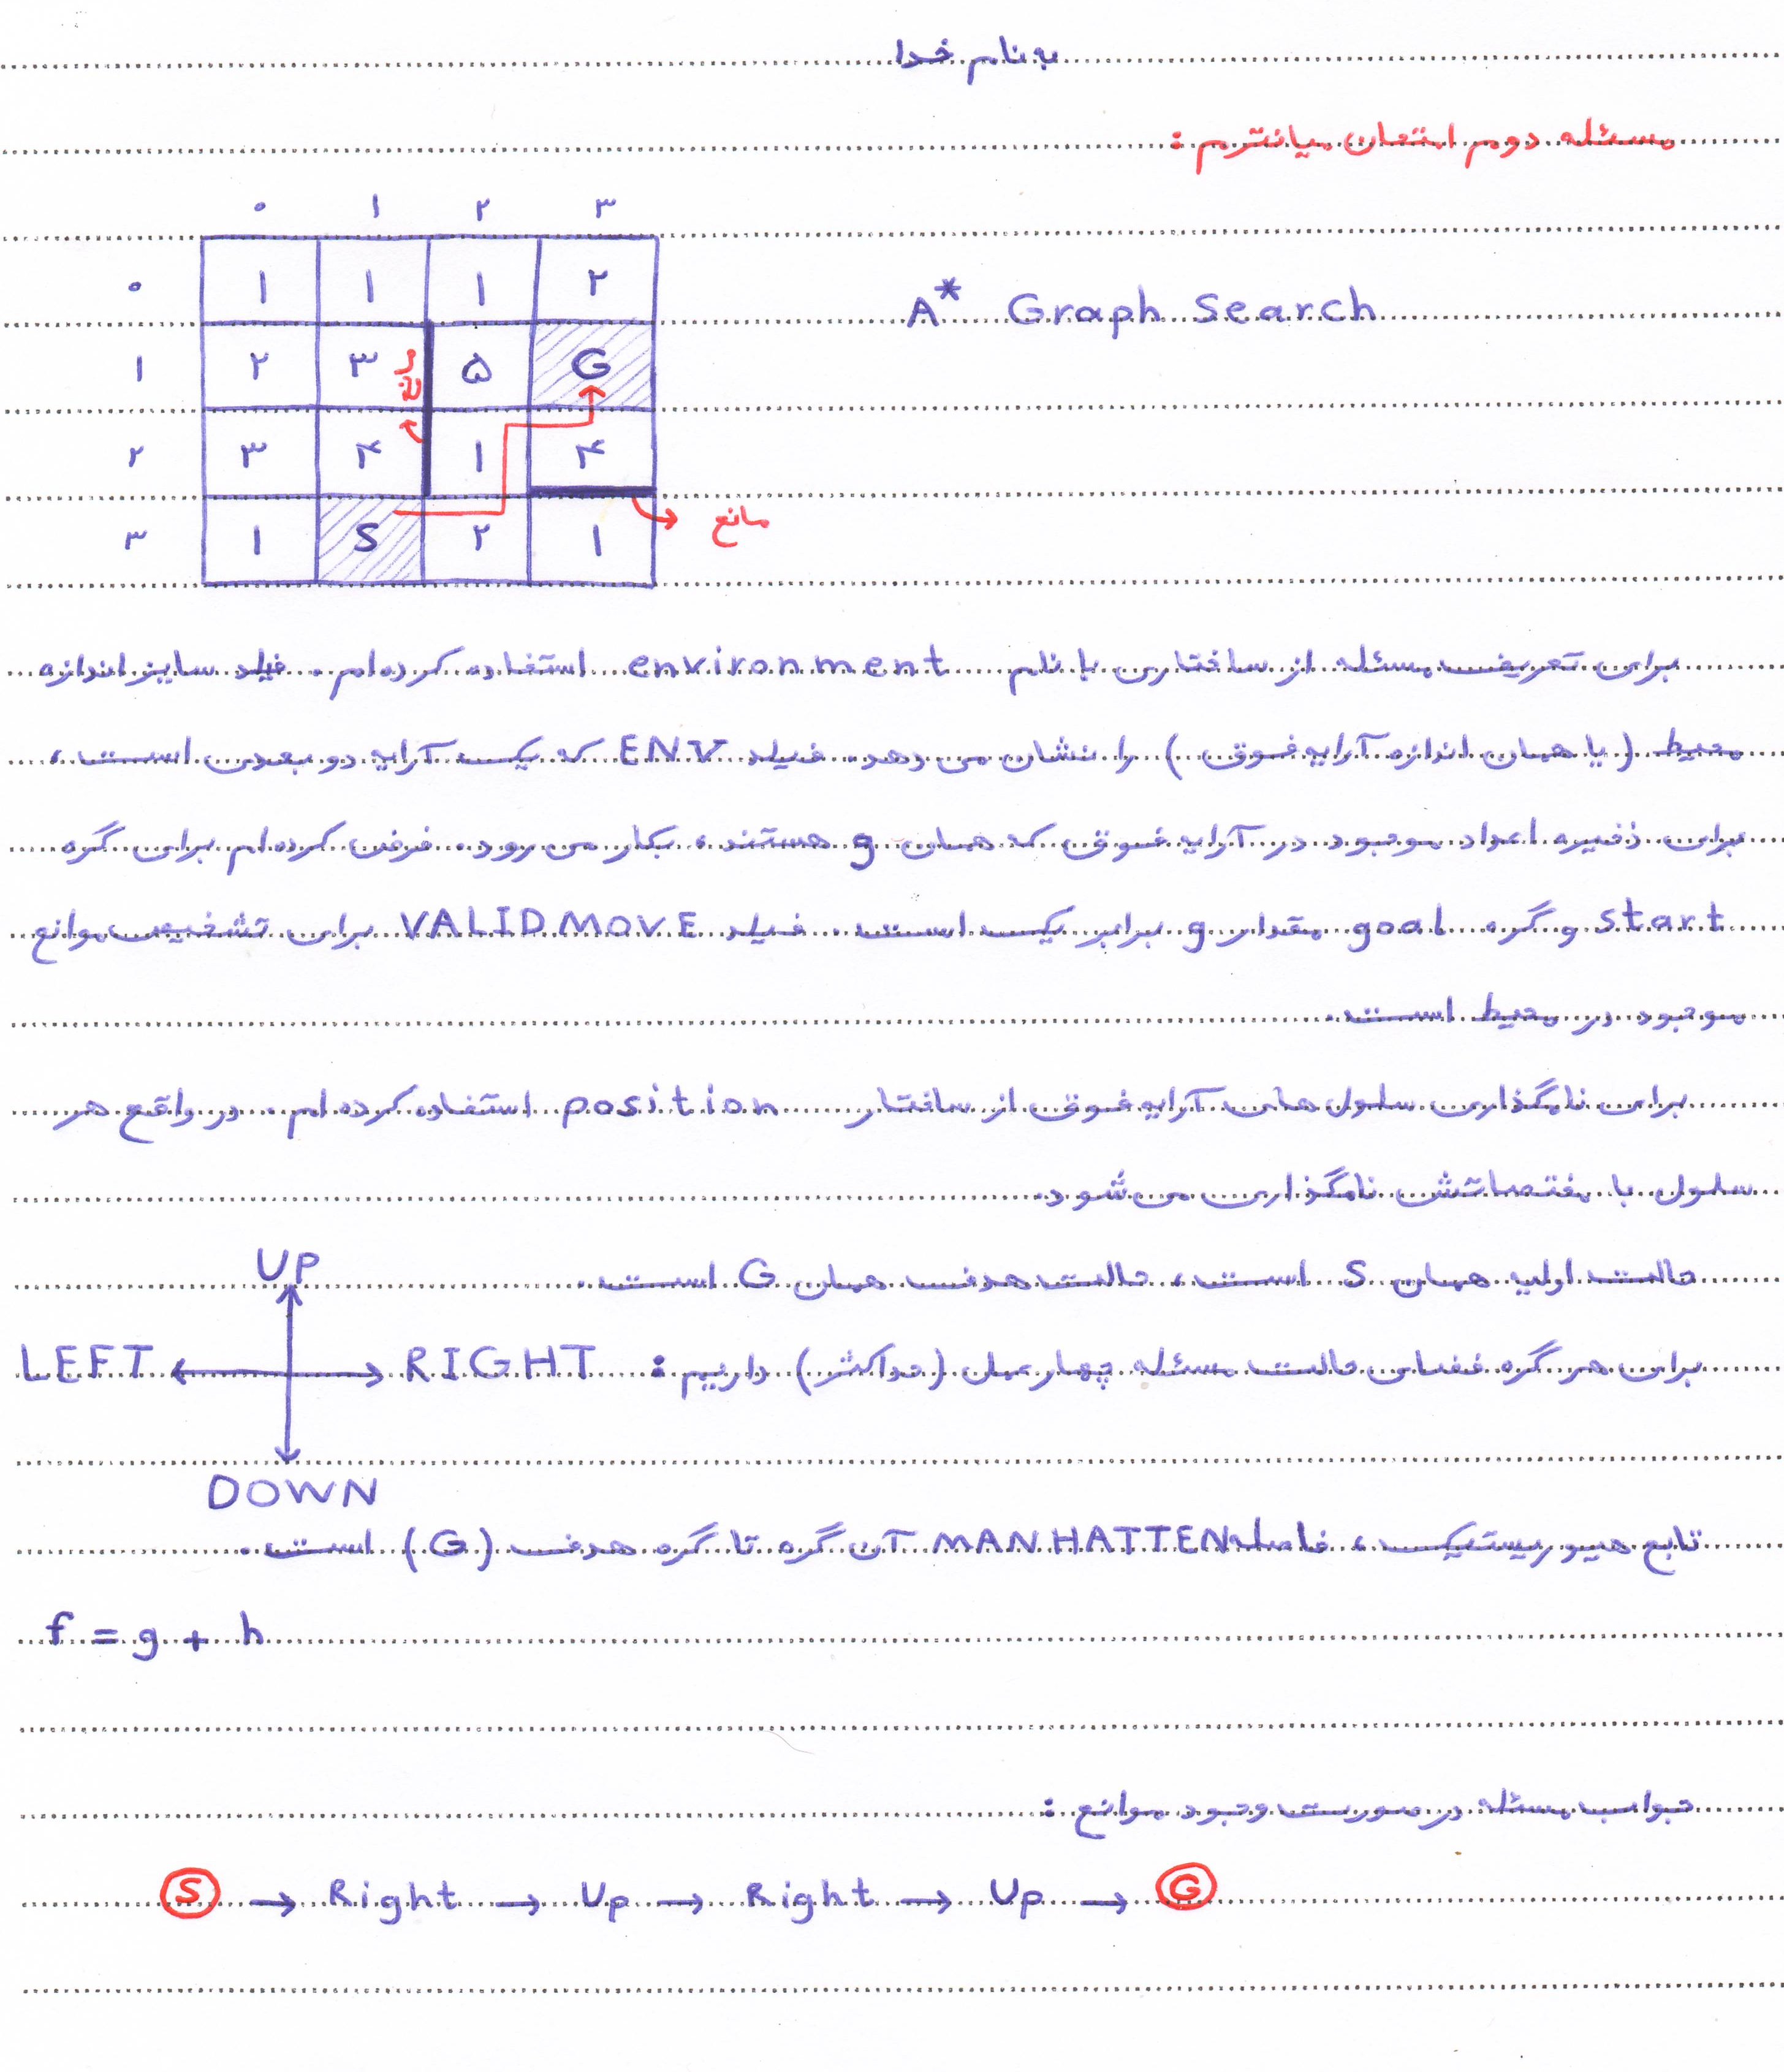 به نام خدا
مسئله دوم امتحان میانترم :
۰ ۱ ۲ ۳
۰ ۱ ۱ ۱ ۲
A* Graph Search
۱ ۲ ۳ مانع ۵ G
۲ ۳ ۴ ۱ ۴
۳ ۱ S ۲ ۱ مانع
برای تعریف مسئله از ساختاری با نام environment استفاده کرده‌ام. فیلد سایز اندازه
محیط (یا همان اندازه آرایه فوق) را نشان می دهد. فیلد ENV که یک آرایه دو بعدی است،
برای ذخیره اعداد موجود در آرایه فوق که همان g هستند، بکار می رود. فرض کرده ام برای گره
start و گره goal مقدار g برابر یک است. فیلد VALIDMOVE برای تشخیص موانع
موجود در محیط است.
برای نامگذاری سلول های آرایه فوق از ساختار position استفاده کرده ام. در واقع هر
سلول با مختصاتش نامگذاری می شود.
حالت اولیه همان S است، حالت هدف همان G است.
برای هر گره فضای حالت مسئله چهار عمل (حداکثر) داریم :
UP
LEFT RIGHT
DOWN
تابع هیوریستیک، فاصله MANHATTEN آن گره تا گره هدف (G) است.
f = g + h
جواب مسئله در صورت وجود موانع :
S → Right → Up → Right → Up → G